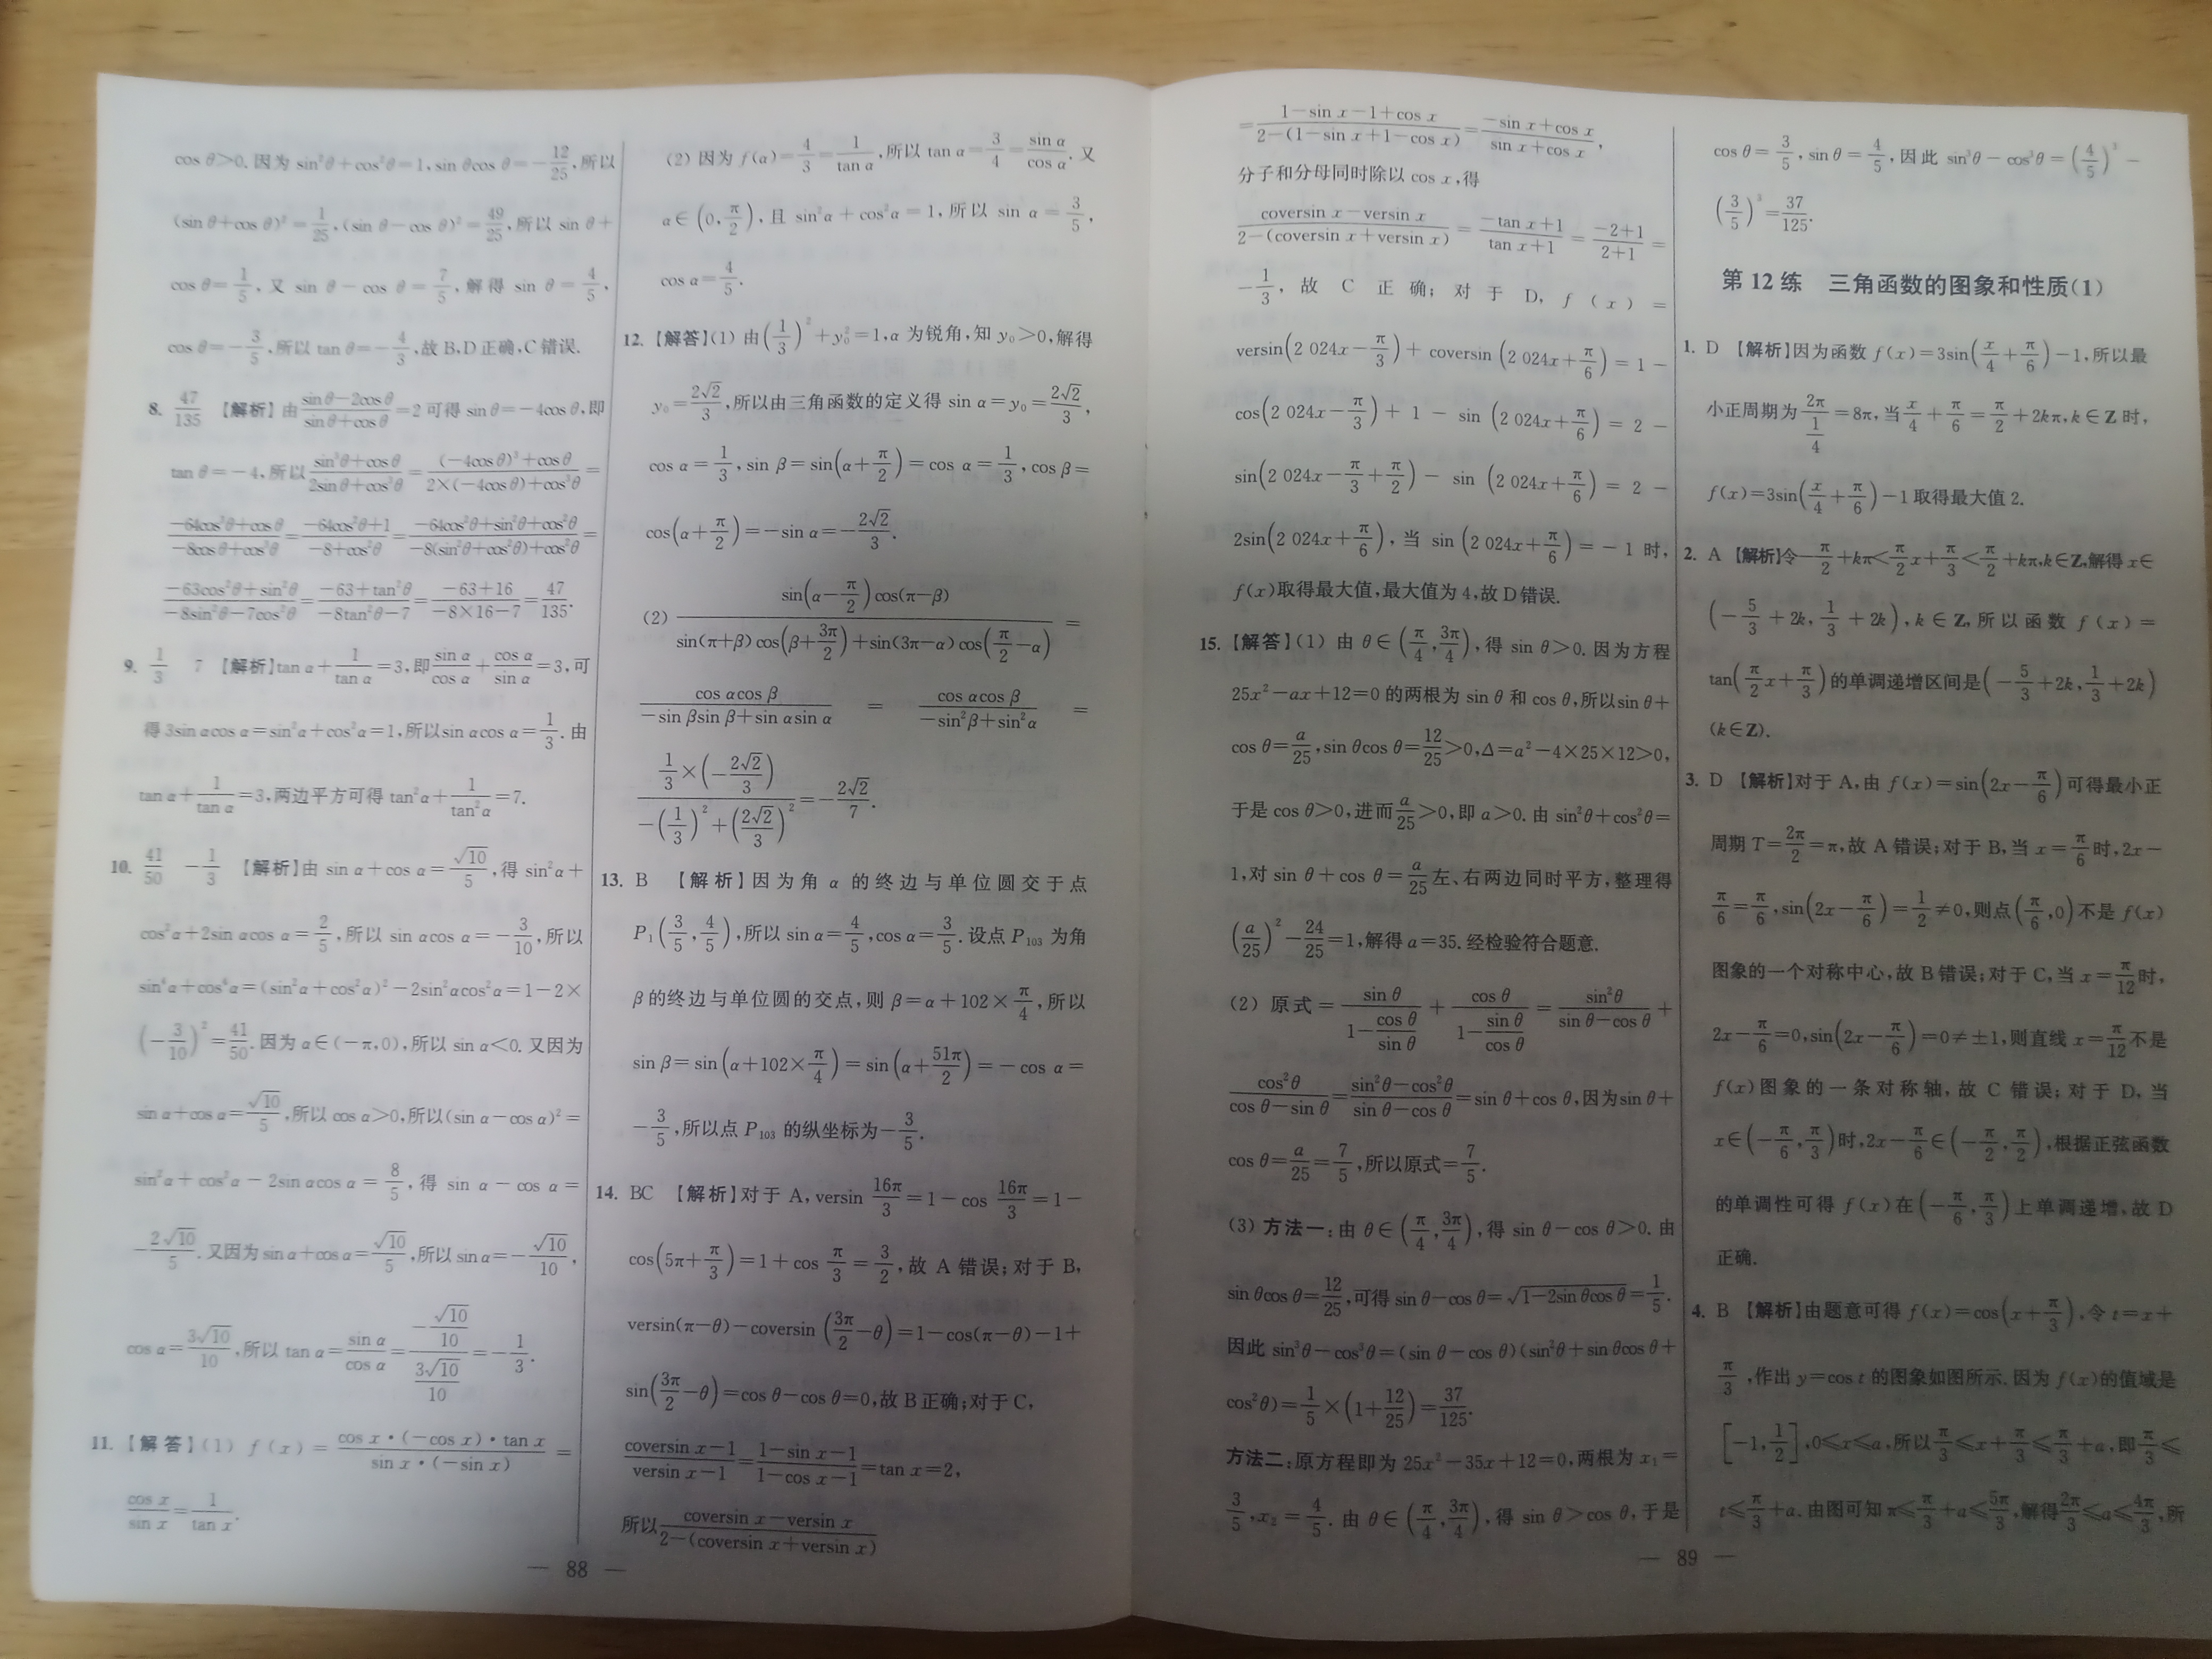 cos θ>0. 因为 sin²θ+cos²θ=1, sin θcos θ=-12/25, 所以
(sin θ+cos θ)²=1/25, (sin θ-cos θ)²=49/25, 所以 sin θ+
cos θ=1/5, 又 sin θ-cos θ=7/5, 解得 sin θ=4/5,
cos θ=-3/5, 所以 tan θ=-4/3, 故 B,D 正确, C 错误.
8. 47/135 【解析】由 (sin θ-2cos θ)/(sin θ+cos θ)=2 可得 sin θ=-4cos θ, 即
tan θ=-4, 所以 (sin³θ+cos θ)/(2sin θ+cos³θ)=((-4cos θ)³+cos θ)/(2×(-4cos θ)+cos³θ)=
(-64cos³θ+cos θ)/(-8cos θ+cos³θ)=(-64cos²θ+1)/(-8+cos²θ)=(-64cos²θ+sin²θ+cos²θ)/(-8(sin²θ+cos²θ)+cos²θ)=
(-63cos²θ+sin²θ)/(-8sin²θ-7cos²θ)=(-63+tan²θ)/(-8tan²θ-7)=(-63+16)/(-8×16-7)=47/135.
9. 1/3 7 【解析】tan α+1/tan α=3, 即 sin α/cos α+cos α/sin α=3, 可
得 3sin αcos α=sin²α+cos²α=1, 所以 sin αcos α=1/3. 由
tan α+1/tan α=3, 两边平方可得 tan²α+1/tan²α=7.
10. 41/50 -1/3 【解析】由 sin α+cos α=√10/5, 得 sin²α+
cos²α+2sin αcos α=2/5, 所以 sin αcos α=-3/10, 所以
sin⁴α+cos⁴α=(sin²α+cos²α)²-2sin²αcos²α=1-2×
(-3/10)²=41/50. 因为 α∈(-π,0), 所以 sin α<0. 又因为
sin α+cos α=√10/5, 所以 cos α>0, 所以(sin α-cos α)²=
sin²α+cos²α-2sin αcos α=8/5, 得 sin α-cos α=
-2√10/5. 又因为 sin α+cos α=√10/5, 所以 sin α=-√10/10,
cos α=3√10/10, 所以 tan α=sin α/cos α=(-√10/10)/(3√10/10)=-1/3.
11. 【解答】(1) f(x)=(cos x·(-cos x)·tan x)/(sin x·(-sin x))=
cos x/sin x=1/tan x.
(2) 因为 f(α)=4/3=1/tan α, 所以 tan α=3/4=sin α/cos α. 又
α∈(0,π/2), 且 sin²α+cos²α=1, 所以 sin α=3/5,
cos α=4/5.
12. 【解答】(1) 由(1/3)²+y₀²=1, α 为锐角, 知 y₀>0, 解得
y₀=2√2/3, 所以由三角函数的定义得 sin α=y₀=2√2/3,
cos α=1/3, sin β=sin(α+π/2)=cos α=1/3, cos β=
cos(α+π/2)=-sin α=-2√2/3.
(2) (sin(α-π/2)cos(π-β))/(sin(π+β)cos(β+3π/2)+sin(3π-α)cos(π/2-α))=
(cos αcos β)/(-sin βsin β+sin αsin α)=(cos αcos β)/(-sin²β+sin²α)=
(1/3×(-2√2/3))/(-(1/3)²+(2√2/3)²)=-2√2/7.
13. B 【解析】因为角 α 的终边与单位圆交于点
P₁(3/5,4/5), 所以 sin α=4/5, cos α=3/5. 设点 P₁₀₃ 为角
β 的终边与单位圆的交点, 则 β=α+102×π/4, 所以
sin β=sin(α+102×π/4)=sin(α+51π/2)=-cos α=
-3/5, 所以点 P₁₀₃ 的纵坐标为-3/5.
14. BC 【解析】对于 A, versin 16π/3=1-cos 16π/3=1-
cos(5π+π/3)=1+cos π/3=3/2, 故 A 错误; 对于 B,
versin(π-θ)-coversin(3π/2-θ)=1-cos(π-θ)-1+
sin(3π/2-θ)=cos θ-cos θ=0, 故 B 正确; 对于 C,
(coversin x-1)/(versin x-1)=(1-sin x-1)/(1-cos x-1)=tan x=2,
所以 (coversin x-versin x)/(2-(coversin x+versin x))
— 88 —
=(1-sin x-1+cos x)/(2-(1-sin x+1-cos x))=(-sin x+cos x)/(sin x+cos x),
分子和分母同时除以 cos x, 得
(coversin x-versin x)/(2-(coversin x+versin x))=(-tan x+1)/(tan x+1)=(-2+1)/(2+1)=
-1/3, 故 C 正确; 对于 D, f(x)=
versin(2 024x-π/3)+coversin(2 024x+π/6)=1-
cos(2 024x-π/3)+1-sin(2 024x+π/6)=2-
sin(2 024x-π/3+π/2)-sin(2 024x+π/6)=2-
2sin(2 024x+π/6), 当 sin(2 024x+π/6)=-1 时,
f(x)取得最大值, 最大值为 4, 故 D 错误.
15. 【解答】(1) 由 θ∈(π/4,3π/4), 得 sin θ>0. 因为方程
25x²-ax+12=0 的两根为 sin θ 和 cos θ, 所以 sin θ+
cos θ=a/25, sin θcos θ=12/25>0, Δ=a²-4×25×12>0,
于是 cos θ>0, 进而 a/25>0, 即 a>0. 由 sin²θ+cos²θ=
1, 对 sin θ+cos θ=a/25 左、右两边同时平方, 整理得
(a/25)²-24/25=1, 解得 a=35. 经检验符合题意.
(2) 原式=sin θ/(1-cos θ/sin θ)+cos θ/(1-sin θ/cos θ)=sin²θ/(sin θ-cos θ)+
cos²θ/(cos θ-sin θ)=(sin²θ-cos²θ)/(sin θ-cos θ)=sin θ+cos θ, 因为 sin θ+
cos θ=a/25=7/5, 所以原式=7/5.
(3) 方法一: 由 θ∈(π/4,3π/4), 得 sin θ-cos θ>0. 由
sin θcos θ=12/25, 可得 sin θ-cos θ=√(1-2sin θcos θ)=1/5.
因此 sin³θ-cos³θ=(sin θ-cos θ)(sin²θ+sin θcos θ+
cos²θ)=1/5×(1+12/25)=37/125.
方法二: 原方程即为 25x²-35x+12=0, 两根为 x₁=
3/5, x₂=4/5. 由 θ∈(π/4,3π/4), 得 sin θ>cos θ, 于是
cos θ=3/5, sin θ=4/5, 因此 sin³θ-cos³θ=(4/5)³-
(3/5)³=37/125.
第 12 练 三角函数的图象和性质(1)
1. D 【解析】因为函数 f(x)=3sin(x/4+π/6)-1, 所以最
小正周期为 2π/(1/4)=8π, 当 x/4+π/6=π/2+2kπ, k∈Z 时,
f(x)=3sin(x/4+π/6)-1 取得最大值 2.
2. A 【解析】令-π/2+kπ<π/2x+π/3<π/2+kπ, k∈Z, 解得 x∈
(-5/3+2k,1/3+2k), k∈Z, 所以函数 f(x)=
tan(π/2x+π/3)的单调递增区间是(-5/3+2k,1/3+2k)
(k∈Z).
3. D 【解析】对于 A, 由 f(x)=sin(2x-π/6)可得最小正
周期 T=2π/2=π, 故 A 错误; 对于 B, 当 x=π/6 时, 2x-
π/6=π/6, sin(2x-π/6)=1/2≠0, 则点(π/6,0)不是 f(x)
图象的一个对称中心, 故 B 错误; 对于 C, 当 x=π/12 时,
2x-π/6=0, sin(2x-π/6)=0≠±1, 则直线 x=π/12 不是
f(x)图象的一条对称轴, 故 C 错误; 对于 D, 当
x∈(-π/6,π/3)时, 2x-π/6∈(-π/2,π/2), 根据正弦函数
的单调性可得 f(x)在(-π/6,π/3)上单调递增, 故 D
正确.
4. B 【解析】由题意可得 f(x)=cos(x+π/3), 令 t=x+
π/3, 作出 y=cos t 的图象如图所示. 因为 f(x)的值域是
[-1,1/2], 0≤x≤a, 所以 π/3≤x+π/3≤π/3+a, 即 π/3≤
t≤π/3+a. 由图可知 π≤π/3+a≤5π/3, 解得 2π/3≤a≤4π/3, 所
— 89 —